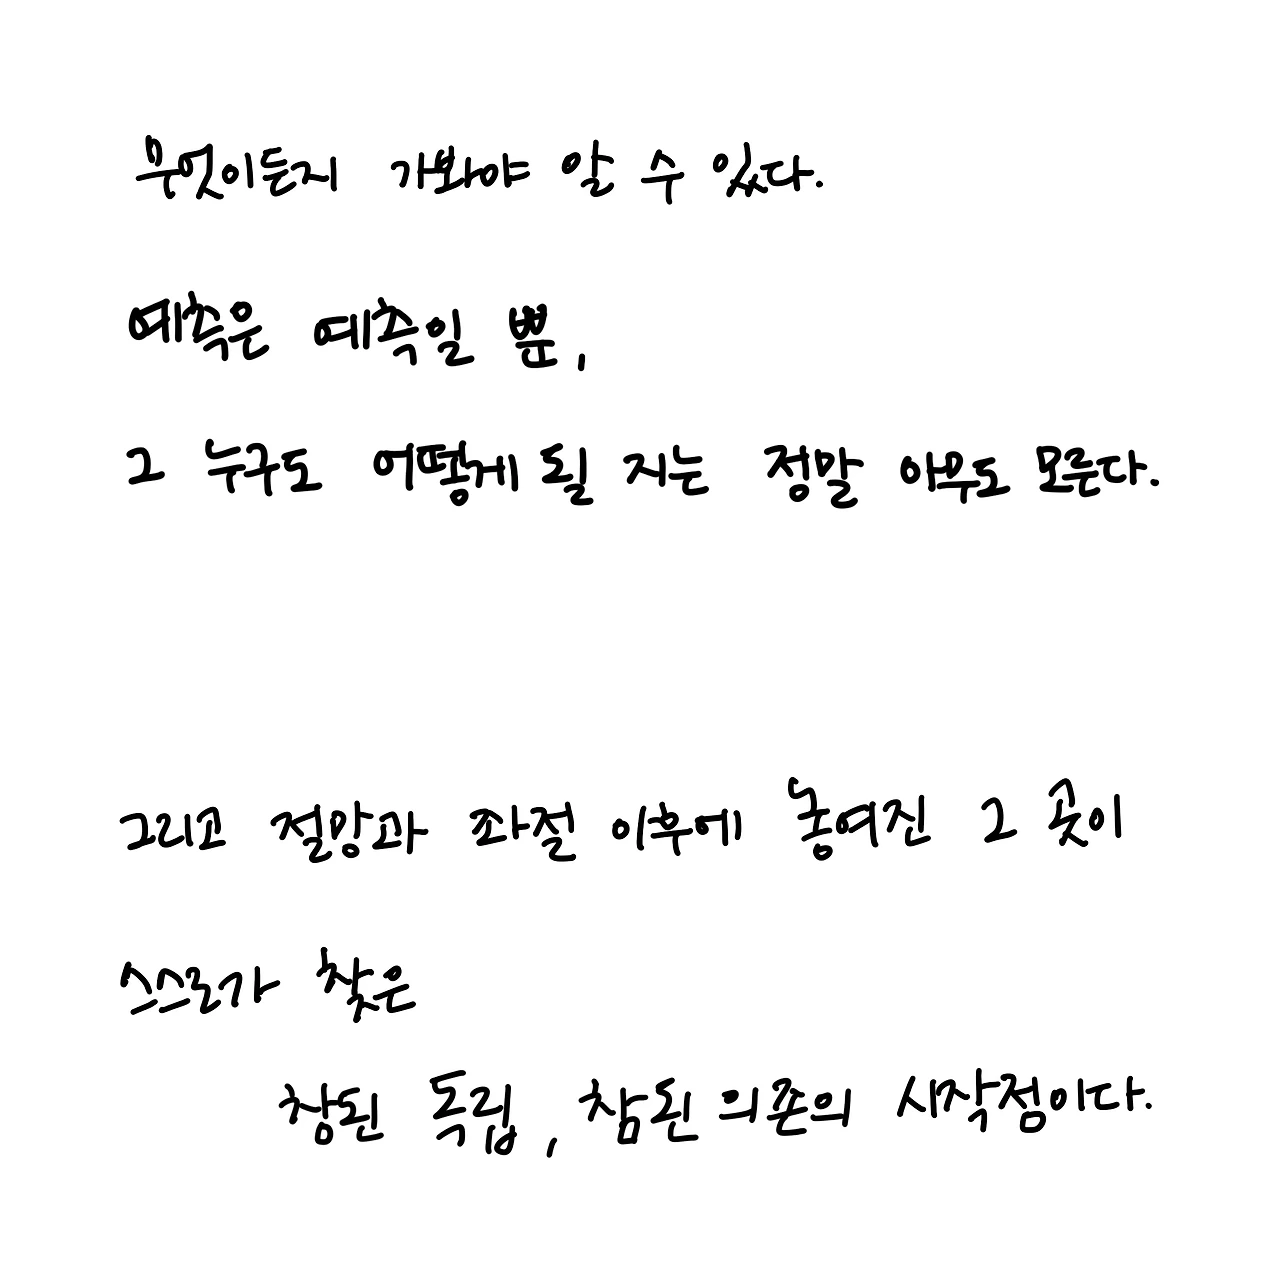 무엇이든지 가봐야 알 수 있다.
예측은 예측일 뿐,
그 누구도 어떻게 될 지는 정말 아무도 모른다.
그리고 절망과 좌절 이후에 놓여진 그 곳이
스스로가 찾은
참된 독립, 참된 의존의 시작점이다.